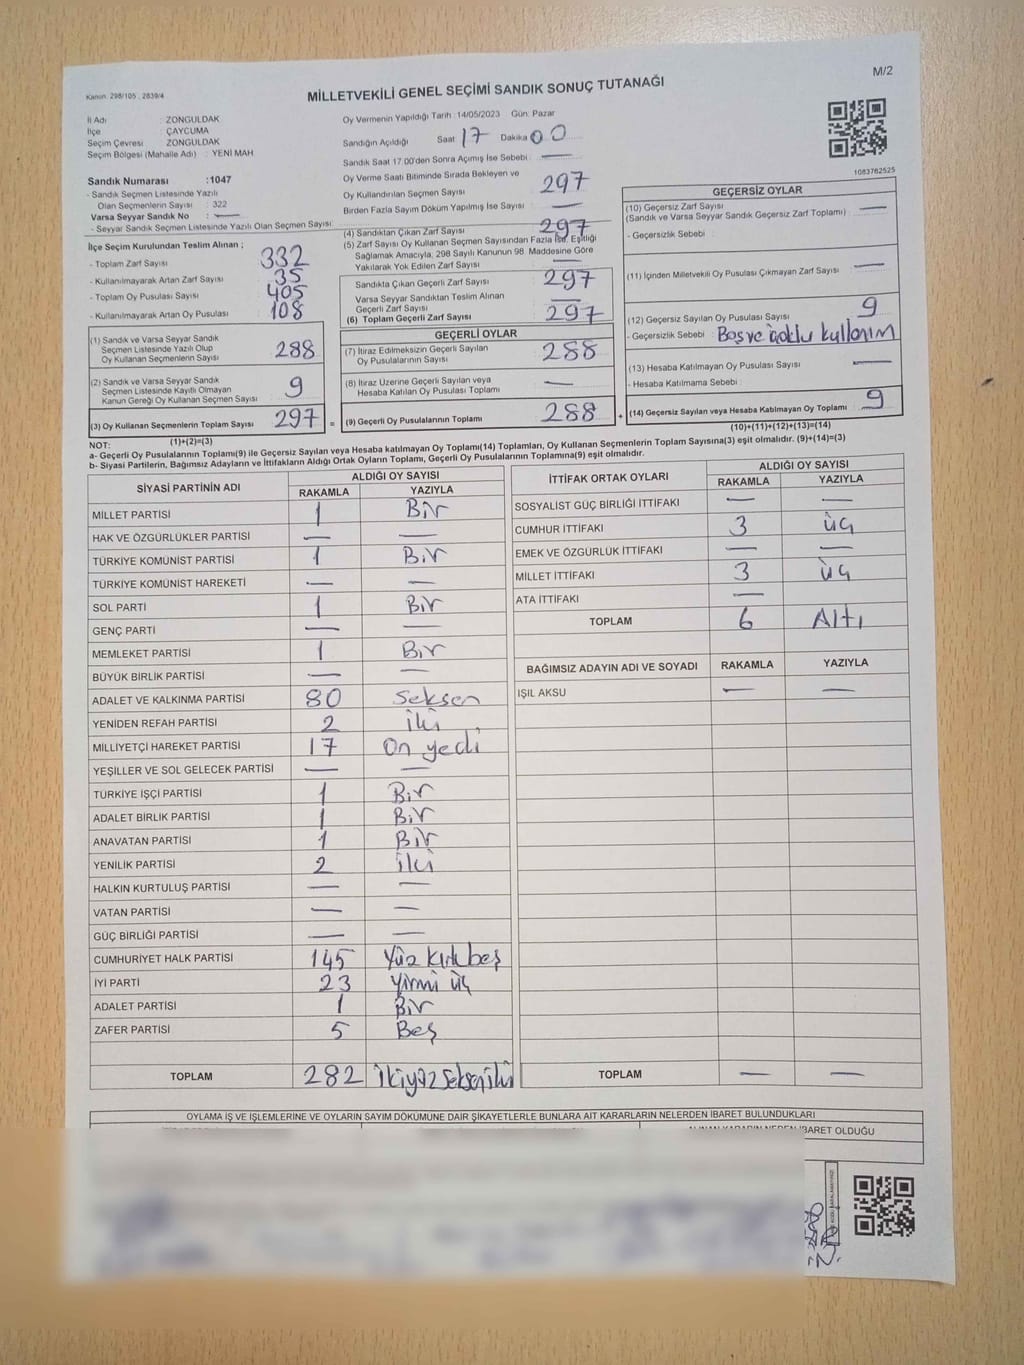 Kanun. 298/105 , 2839/4
MİLLETVEKİLİ GENEL SEÇİMİ SANDIK SONUÇ TUTANAĞI
M/2
İl Adı : ZONGULDAK
İlçe : ÇAYCUMA
Seçim Çevresi ZONGULDAK
Seçim Bölgesi (Mahalle Adı) : YENİ MAH
Sandık Numarası :1047
- Sandık Seçmen Listesinde Yazılı
Olan Seçmenlerin Sayısı : 322
Varsa Seyyar Sandık No : —
- Seyyar Sandık Seçmen Listesinde Yazılı Olan Seçmen Sayısı:
İlçe Seçim Kurulundan Teslim Alınan ;
- Toplam Zarf Sayısı 332
- Kullanılmayarak Artan Zarf Sayısı 35
- Toplam Oy Pusulası Sayısı 405
- Kullanılmayarak Artan Oy Pusulası 108
(1) Sandık ve Varsa Seyyar Sandık
Seçmen Listesinde Yazılı Olup
Oy Kullanan Seçmenlerin Sayısı 288
(2) Sandık ve Varsa Seyyar Sandık
Seçmen Listesinde Kayıtlı Olmayan
Kanun Gereği Oy Kullanan Seçmen Sayısı 9
(3) Oy Kullanan Seçmenlerin Toplam Sayısı 297 =
(1)+(2)=(3)
Oy Vermenin Yapıldığı Tarih :14/05/2023 Gün: Pazar
Sandığın Açıldığı Saat 17 Dakika 00
Sandık Saat 17.00'den Sonra Açımış İse Sebebi : —
Oy Verme Saati Bitiminde Sırada Bekleyen ve
Oy Kullandırılan Seçmen Sayısı 297
Birden Fazla Sayım Döküm Yapılmış İse Sayısı : —
(4) Sandıktan Çıkan Zarf Sayısı 297
(5) Zarf Sayısı Oy Kullanan Seçmen Sayısından Fazla İse, Eşitliği
Sağlamak Amacıyla, 298 Sayılı Kanunun 98. Maddesine Göre
Yakılarak Yok Edilen Zarf Sayısı —
Sandıkta Çıkan Geçerli Zarf Sayısı 297
Varsa Seyyar Sandıktan Teslim Alınan
Geçerli Zarf Sayısı —
(6) Toplam Geçerli Zarf Sayısı 297
GEÇERLİ OYLAR
(7) İtiraz Edilmeksizin Geçerli Sayılan
Oy Pusulalarının Sayısı 288
(8) İtiraz Üzerine Geçerli Sayılan veya
Hesaba Katılan Oy Pusulası Toplamı —
(9) Geçerli Oy Pusulalarının Toplamı 288 +
1083762525
GEÇERSİZ OYLAR
(10) Geçersiz Zarf Sayısı —
(Sandık ve Varsa Seyyar Sandık Geçersiz Zarf Toplamı)
- Geçersizlik Sebebi :
(11) İçinden Milletvekili Oy Pusulası Çıkmayan Zarf Sayısı —
(12) Geçersiz Sayılan Oy Pusulası Sayısı 9
- Geçersizlik Sebebi : Boş ve çoklu kullanım
(13) Hesaba Katılmayan Oy Pusulası Sayısı —
- Hesaba Katılmama Sebebi
(14) Geçersiz Sayılan veya Hesaba Katılmayan Oy Toplamı 9
(10)+(11)+(12)+(13)=(14)
NOT:
a- Geçerli Oy Pusulalarının Toplamı(9) ile Geçersiz Sayılan veya Hesaba katılmayan Oy Toplamı(14) Toplamları, Oy Kullanan Seçmenlerin Toplam Sayısına(3) eşit olmalıdır. (9)+(14)=(3)
b- Siyasi Partilerin, Bağımsız Adayların ve İttifakların Aldığı Ortak Oyların Toplamı, Geçerli Oy Pusulalarının Toplamına(9) eşit olmalıdır.
SİYASİ PARTİNİN ADI ALDIĞI OY SAYISI
RAKAMLA YAZIYLA
MİLLET PARTİSİ 1 Bir
HAK VE ÖZGÜRLÜKLER PARTİSİ — —
TÜRKİYE KOMÜNİST PARTİSİ 1 Bir
TÜRKİYE KOMÜNİST HAREKETİ — —
SOL PARTİ 1 Bir
GENÇ PARTİ — —
MEMLEKET PARTİSİ 1 Bir
BÜYÜK BİRLİK PARTİSİ — —
ADALET VE KALKINMA PARTİSİ 80 Seksen
YENİDEN REFAH PARTİSİ 2 iki
MİLLİYETÇİ HAREKET PARTİSİ 17 On yedi
YEŞİLLER VE SOL GELECEK PARTİSİ — —
TÜRKİYE İŞÇİ PARTİSİ 1 Bir
ADALET BİRLİK PARTİSİ 1 Bir
ANAVATAN PARTİSİ 1 Bir
YENİLİK PARTİSİ 2 iki
HALKIN KURTULUŞ PARTİSİ — —
VATAN PARTİSİ — —
GÜÇ BİRLİĞİ PARTİSİ — —
CUMHURİYET HALK PARTİSİ 145 Yüz kırk beş
İYİ PARTİ 23 Yirmi üç
ADALET PARTİSİ 1 Bir
ZAFER PARTİSİ 5 Beş
TOPLAM 282 İkiyüz seksen iki
İTTİFAK ORTAK OYLARI ALDIĞI OY SAYISI
RAKAMLA YAZIYLA
SOSYALİST GÜÇ BİRLİĞİ İTTİFAKI — —
CUMHUR İTTİFAKI 3 üç
EMEK VE ÖZGÜRLÜK İTTİFAKI — —
MİLLET İTTİFAKI 3 üç
ATA İTTİFAKI —
TOPLAM 6 Altı
BAĞIMSIZ ADAYIN ADI VE SOYADI RAKAMLA YAZIYLA
IŞIL AKSU — —
TOPLAM — —
OYLAMA İŞ VE İŞLEMLERİNE VE OYLARIN SAYIM DÖKÜMÜNE DAİR ŞİKAYETLERLE BUNLARA AİT KARARLARIN NELERDEN İBARET BULUNDUKLARI
İBARET OLDUĞU